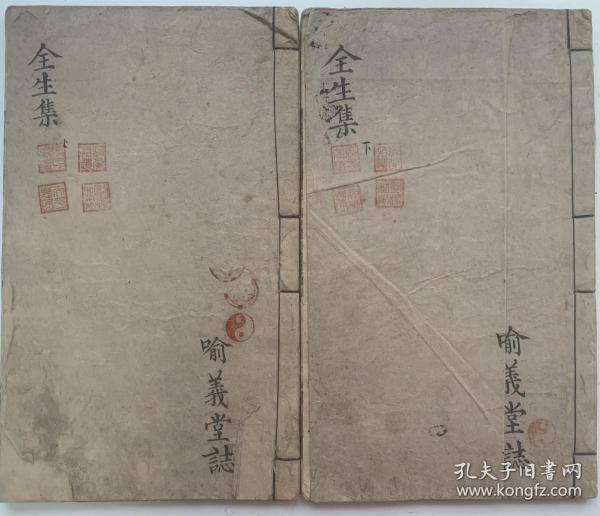 全生集
上
喻義堂誌
全生集
下
喻義堂誌
孔夫子旧書网
www.kongfz.com